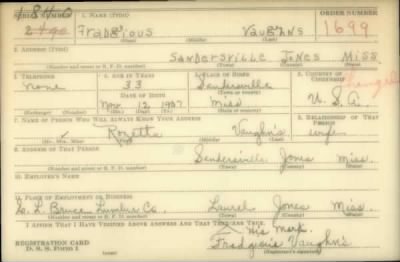 SERIAL NUMBER
1. NAME (Print)
ORDER NUMBER
Vaughns
1699
(First) (Middle) (Last)
2. ADDRESS (Print)
Sandersville Jones Miss.
(Number and street or R. F. D. number) (Town) (County) (State)
3. TELEPHONE
4. AGE IN YEARS
5. PLACE OF BIRTH
6. COUNTRY OF CITIZENSHIP
none
33
Sandersville
DATE OF BIRTH
Nov. 12 1907
Miss
U. S. A.
(Exchange) (Number)
(Mo.) (Day) (Yr.)
(State or country)
7. NAME OF PERSON WHO WILL ALWAYS KNOW YOUR ADDRESS
8. RELATIONSHIP OF THAT PERSON
Rosetta Vaughn's wife
(Mr., Mrs., Miss) (First) (Middle) (Last)
9. ADDRESS OF THAT PERSON
Sandersville Jones Miss.
(Number and street or R. F. D. number) (Town) (County) (State)
10. EMPLOYER'S NAME
11. PLACE OF EMPLOYMENT OR BUSINESS
E. L. Bruce Lumber Co. Laurel Jones Miss.
(Number and street or R. F. D. number) (Town) (County) (State)
I AFFIRM THAT I HAVE VERIFIED ABOVE ANSWERS AND THAT THEY ARE TRUE.
his mark
REGISTRATION CARD
D. S. S. Form 1
(over)
Vaughn's
(Registrant's signature)